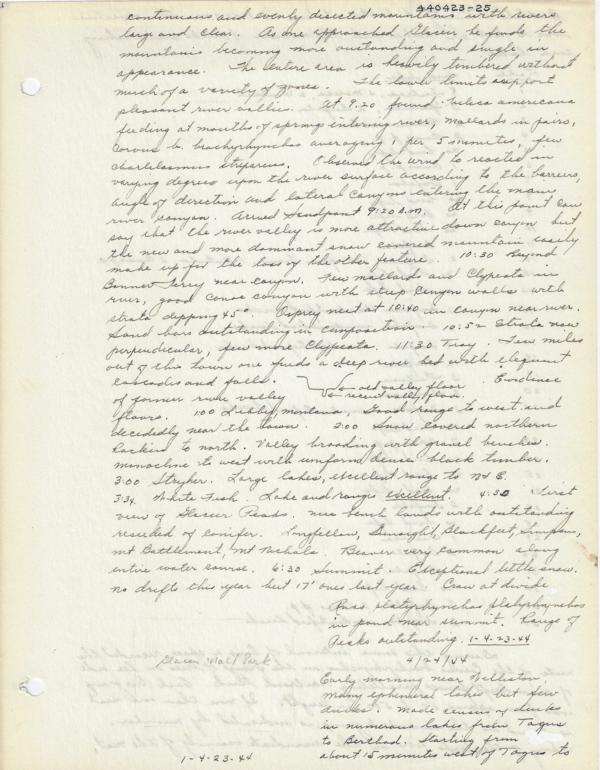 440423-25
continuous and evenly disected mountains with rivers
large and clear. As one approached Glacier he finds the
mountains becoming more oustanding and single in
appearance. The entire area is heavily timbered without
much of a variety of zones. The lower limits support
pleasant river vallies. At 9.20 found americana
feeding at mouths of springs entering river, mallards in pairs,
Corvus b. brachyrhynchos averaging 1 per 5 minutes, few
streperus. Observed the wind to reacted in
varying degrees upon the river surface according to the barriers,
angle of direction and lateral canyons entering the main
river canyon. Arrived Sandpoint 9:20 A.M. At this point can
say that the river valley is more attractive down canyon but
the new and more dominant snow covered mountain easily
made up for the loss of the other feature. 10:30 Beyond
Bonner Ferry near canyon. Few mallards and Clypeata in
river, good canoe canyon with steep canyon walls with
strata dipping 45°. Osprey nest at 10:40 in canyon near river.
Sand bars outstanding in composition. 10:52 Strata now
perpendicular, few more Clypeata. 11:30 Troy. Few miles
out of the town one finds a deep river bed with elequent
cascades and falls. old valley floor. Evidence
of former river valley recent valley floor.
floors. 1:00 Libby, Montana, Good range to west and
decidedly near the town. 2:00 Snow covered northern
Rockies to north. Valley broading with gravel benches.
monocline to west with uniform dense black timber.
3:00 Stryker. Large lakes, excellent range to N E.
3:34 White Fish. Lake and ranges excellent. 4:30 First
view of Glacier Peaks. new bench lands with outstanding
reseeded of conifer. Longfellow, Blackfeet, Simpson,
Mt Battlement, Mt Nichols. Beaver very common along
entire water course. 6:30 Summit. Exceptional little snow.
no drifts this year but 17' ones last year. Crow at divide
platyrhynchos platyrhynchos
in pond near summit. Range of
Peaks outstanding. 1-4-23-44
Glacier Nat'l Park
4/24/44
Early morning near Williston.
Many ephemeral lakes but few
ducks. Made census of ducks
in numerous lakes from Tagus
to Berthold. Starting from
about 15 minutes west of Tagus to
1-4-23-44